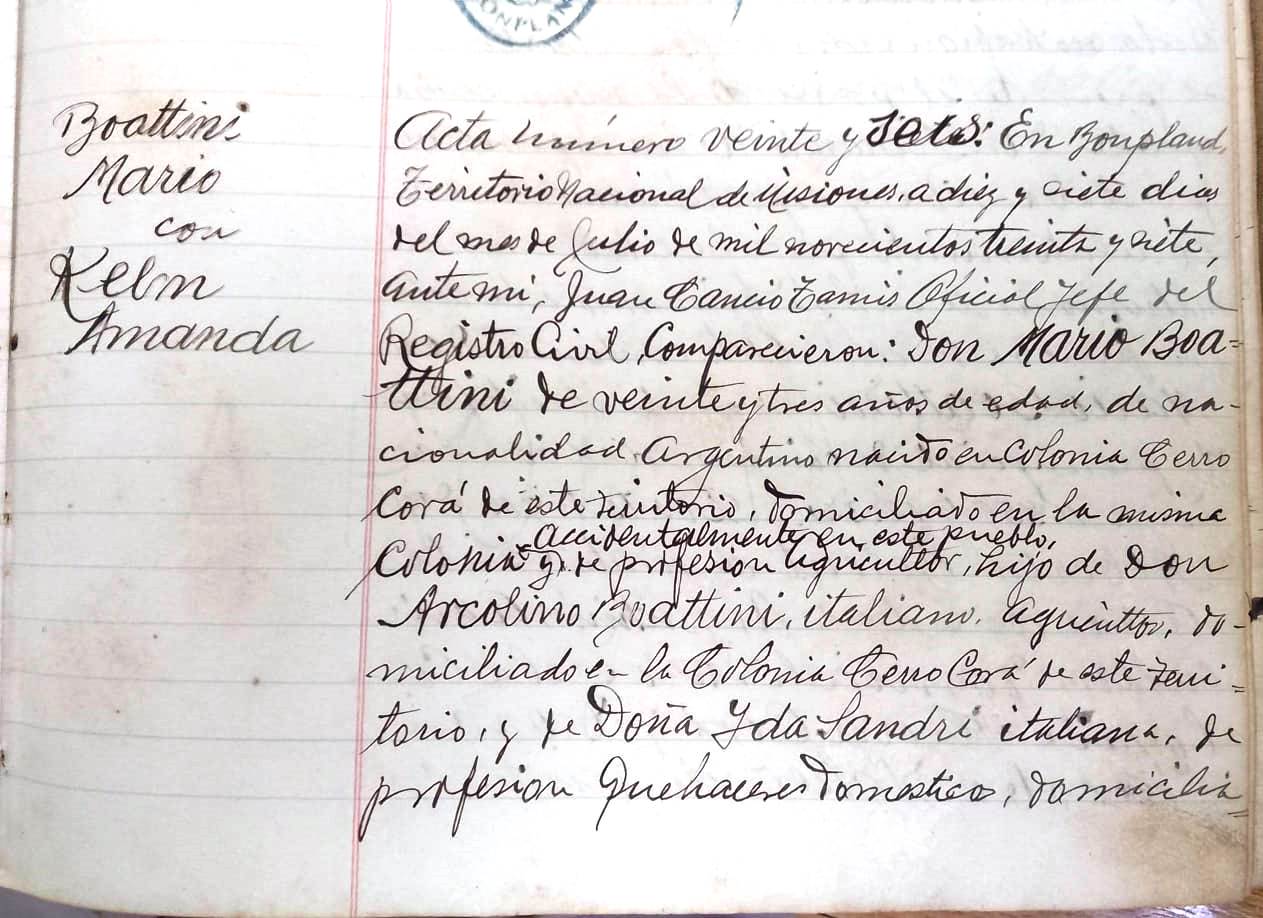 ONPLAN
Boattini
Mario
con
Kelm
Amanda
Acta número veinte y seis: En Bonpland,
Territorio Nacional de Misiones, a diez y siete dias
del mes de Julio de mil novecientos treinta y siete,
ante mi, Juan Cancio Tamis Oficial Jefe del
Registro Civil, Comparecieron: Don Mario Boa=
ttini de veinte y tres años de edad, de na-
cionalidad Argentino nacido en Colonia Cerro
Corá de este Territorio, domiciliado en la misma
accidentalmente en este pueblo,
Colonia y de profesion agricultor, hijo de Don
Arcolino Boattini, italiano, agricultor, do-
miciliado en la Colonia Cerro Corá de este Terri=
torio, y de Doña Yda Sandri italiana, de
profesion Quehaceres domesticos, domicilia=